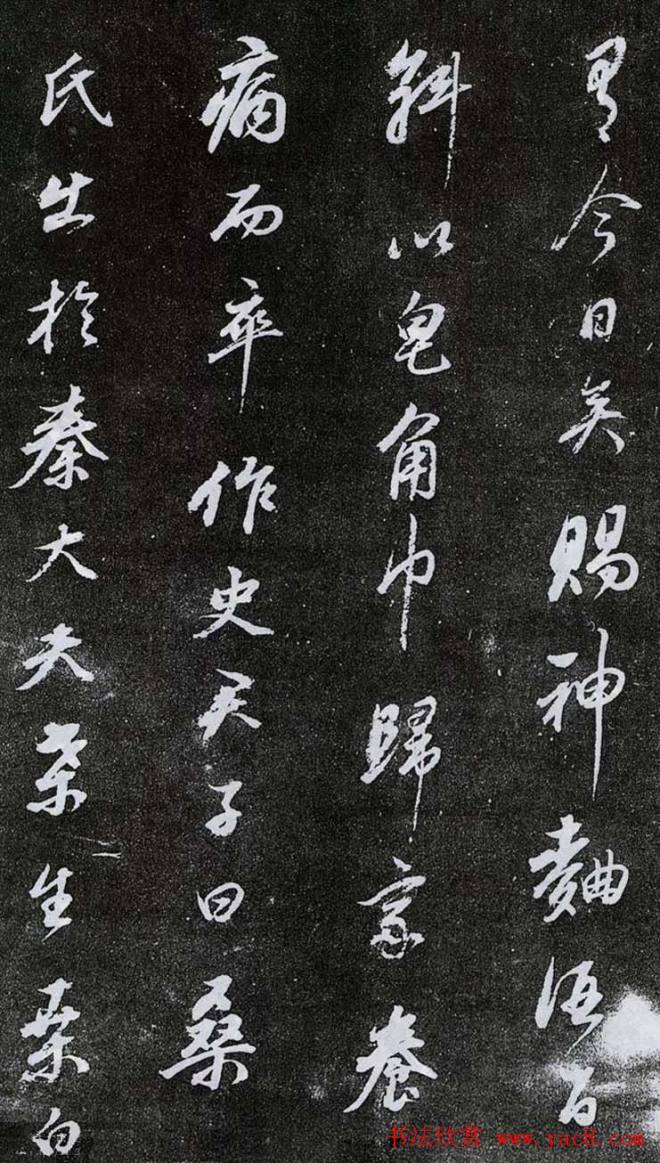 今日矣賜神麯酒百
斛以皂角巾歸家養
病而卒作史君子曰桑
氏出於秦大夫桒生桒白
书法欣赏 www.yac8.com